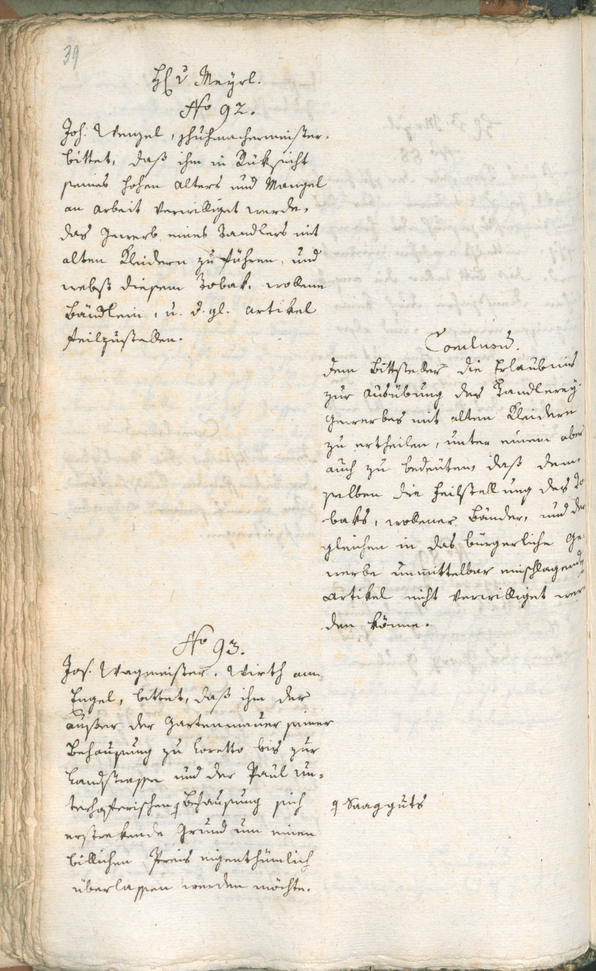 39
H: v Meyrl.
No 92.
Joh. Wenzel, Schuhmachermeister,
bittet, daß ihm in Rüksicht
seines hohen Alters und Mangel
an Arbeit verwilliget werde,
das Gewerb eines Tandlers mit
alten Kleidern zu führen, und
nebst diesem Tobak, wollene
Bändlein, u. d. gl. Artikel
feilzustellen.
Conclusum.
Dem Bittsteller die Erlaubnis
zur Ausübung des Tandlerey
Gewerbes mit alten Kleidern
zu ertheilen, unter einem aber
auch zu bedeuten, daß dem-
selben die Feilstellung des To
baks, wollener Bänder, und der
gleichen in das bürgerliche Ge-
werbe unmittelbar einschlagende
Artikel nicht verwilliget wer
den könne.
No 93.
Jos. Wagmeister, Wirth am
Engel, bittet, daß ihm der
außer der Gartenmauer seiner
Behausung zu Loretto bis zur
Landstrasse und der Paul Un-
terhoferischen Behausung sich
erstrekende Grund um einen
billichen Preis eigenthümlich
überlassen werden möchte.
Saagguts